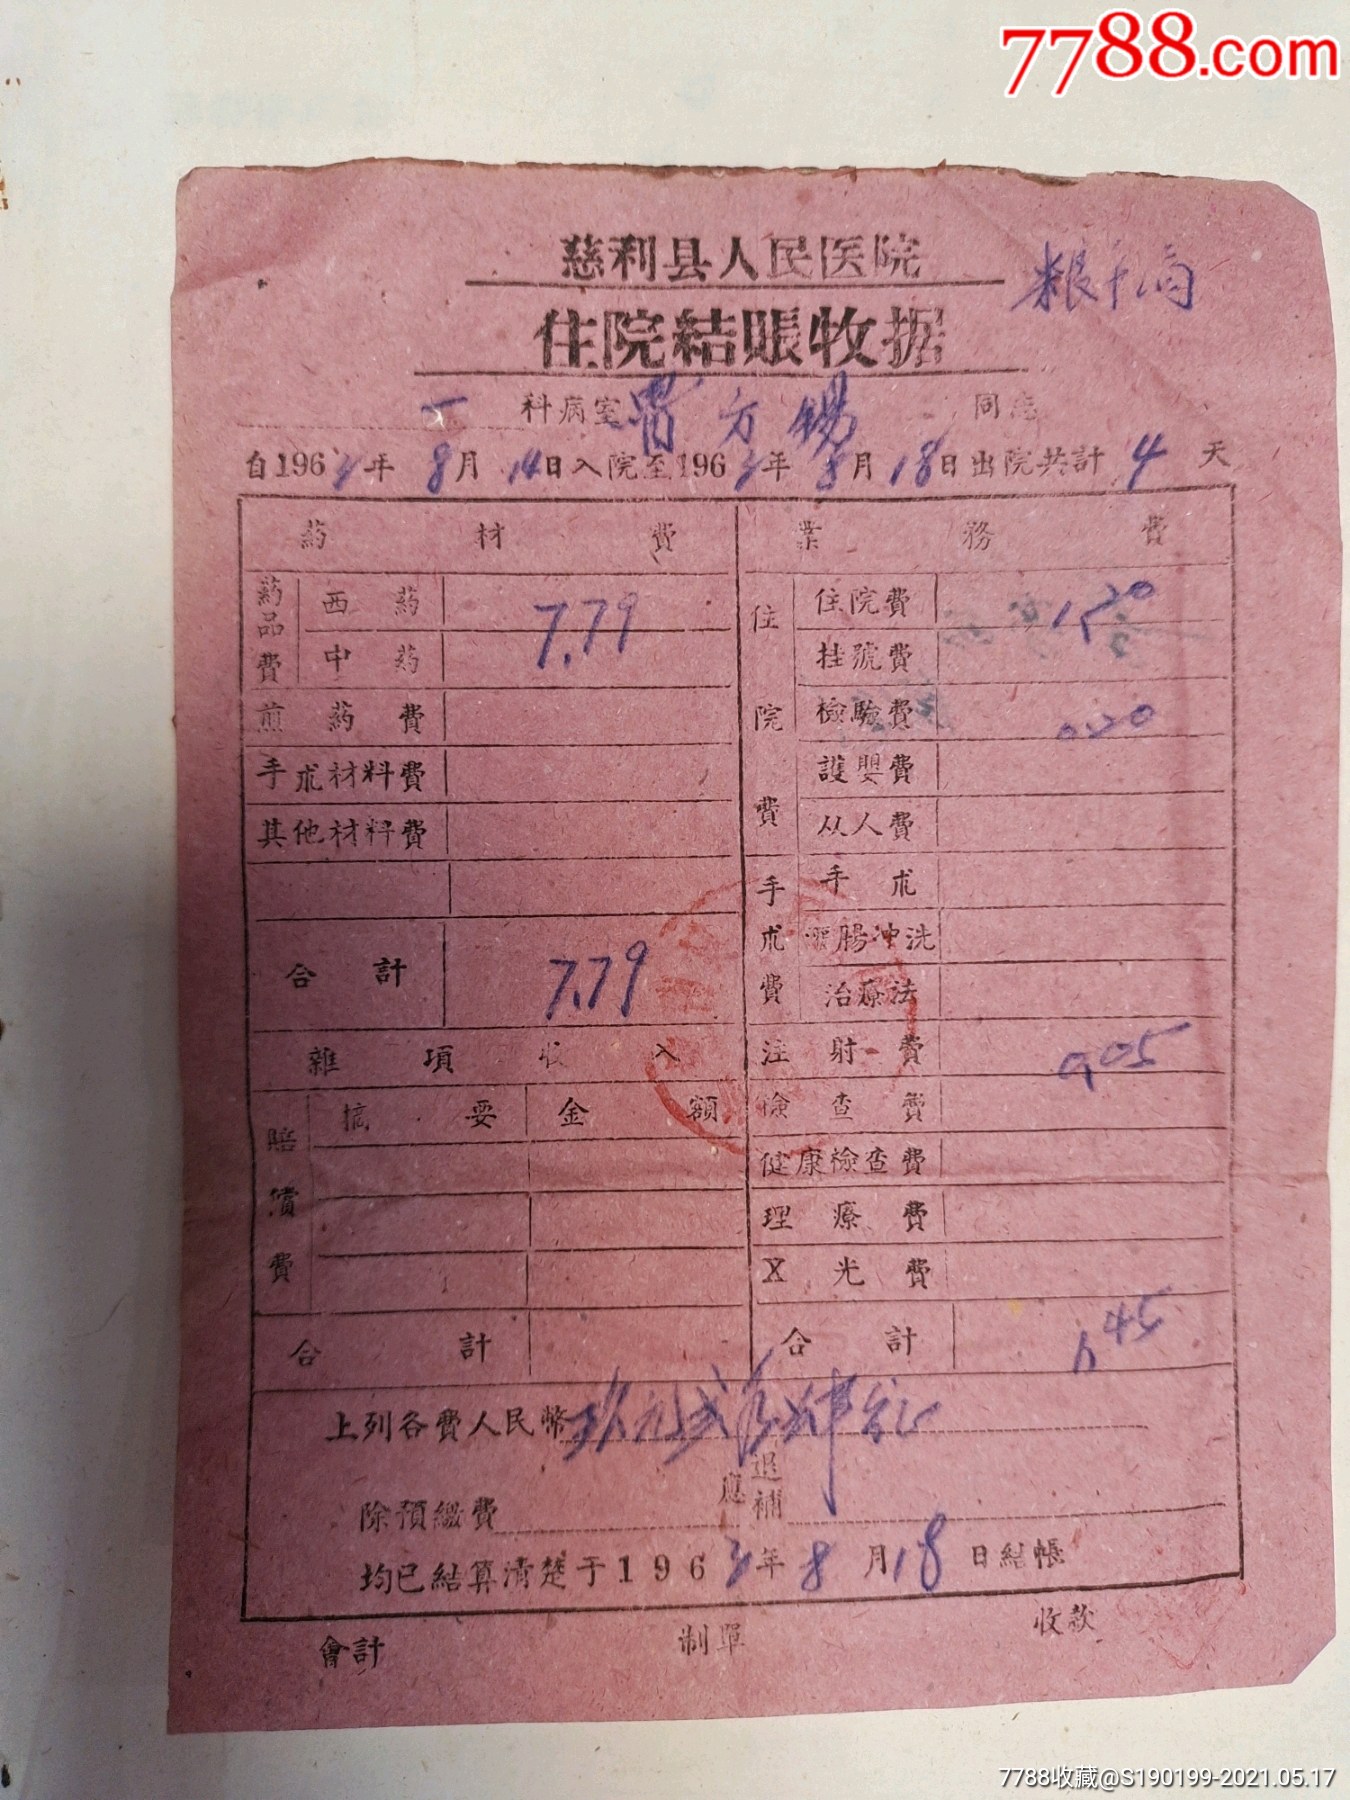 7788.com
慈利县人民医院
住院結賬收据
科病室 曹方锡 同志
自1963年8月14日入院至1963年8月18日出院共計4天
药材費 業務費
药品費 西药 7.79 住院費 住院費 1.20
中药 挂號費
煎药費 檢驗費 0.20
手朮材料費 護嬰費
其他材料費 从人費
手朮費 手朮
腸冲洗
合計 7.79 治療法
雜項收入 注射費 0.05
賠償費 摘要 金額 檢查費
健康檢查費
理療費
X光費
合計 合計 1.45
上列各費人民幣玖元贰角肆分
除預繳費 應退補
均已結算清楚于1963年8月18日結帳
會計 制單 收款
7788收藏@S190199-2021.05.17